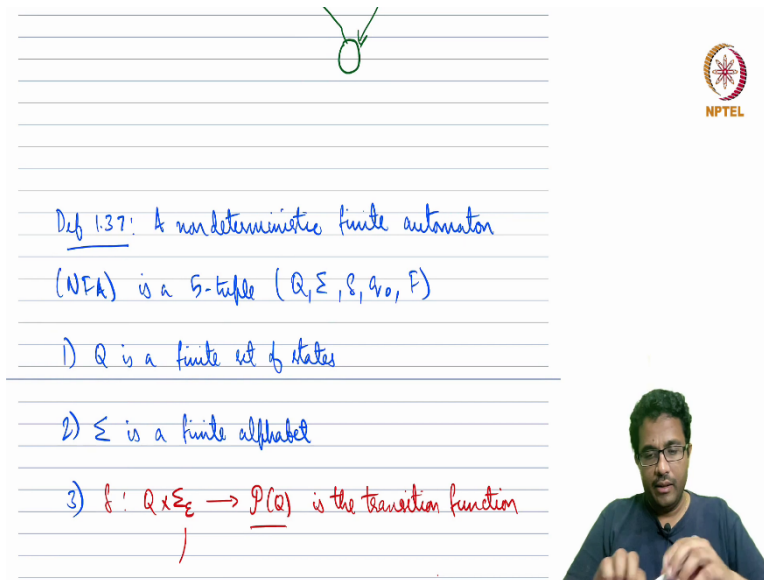 NPTEL
Def 1.37: A nondeterministic finite automaton
(NFA) is a 5-tuple (Q, Σ, δ, q₀, F)
1) Q is a finite set of states
2) Σ is a finite alphabet
3) δ : Q × Σ_ε → P(Q) is the transition function